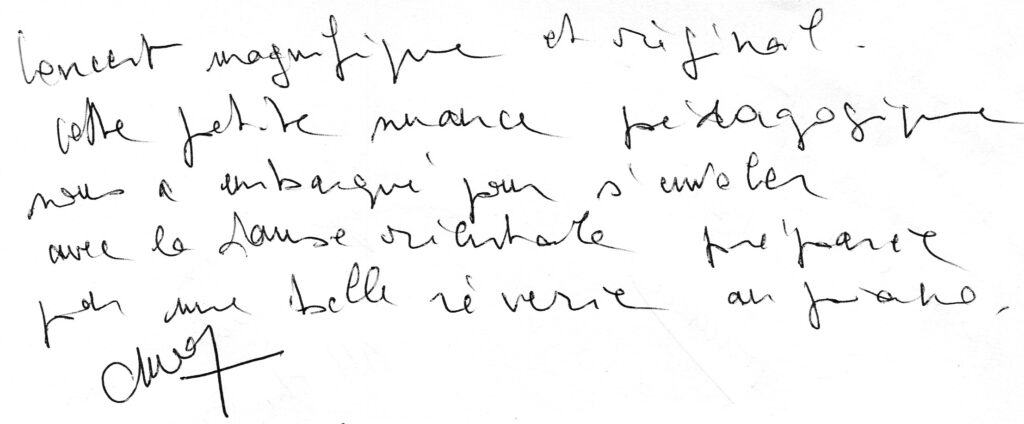 Concert magnifique et original.
cette petite nuance pédagogique
nous a embarqué pour s'envoler
avec la danse orientale préparée
par une belle rêverie au piano.